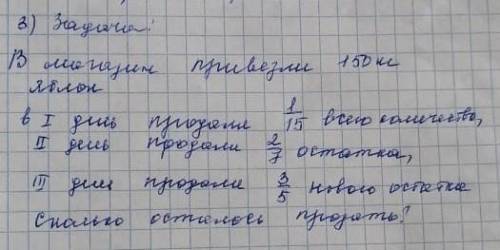 3) Задача:
В магазин привезли 150 кг
яблок
в I день продали 1/15 всего количества,
II день продали 2/7 остатка,
III дня продали 3/5 нового остатка
Сколько осталось продать?